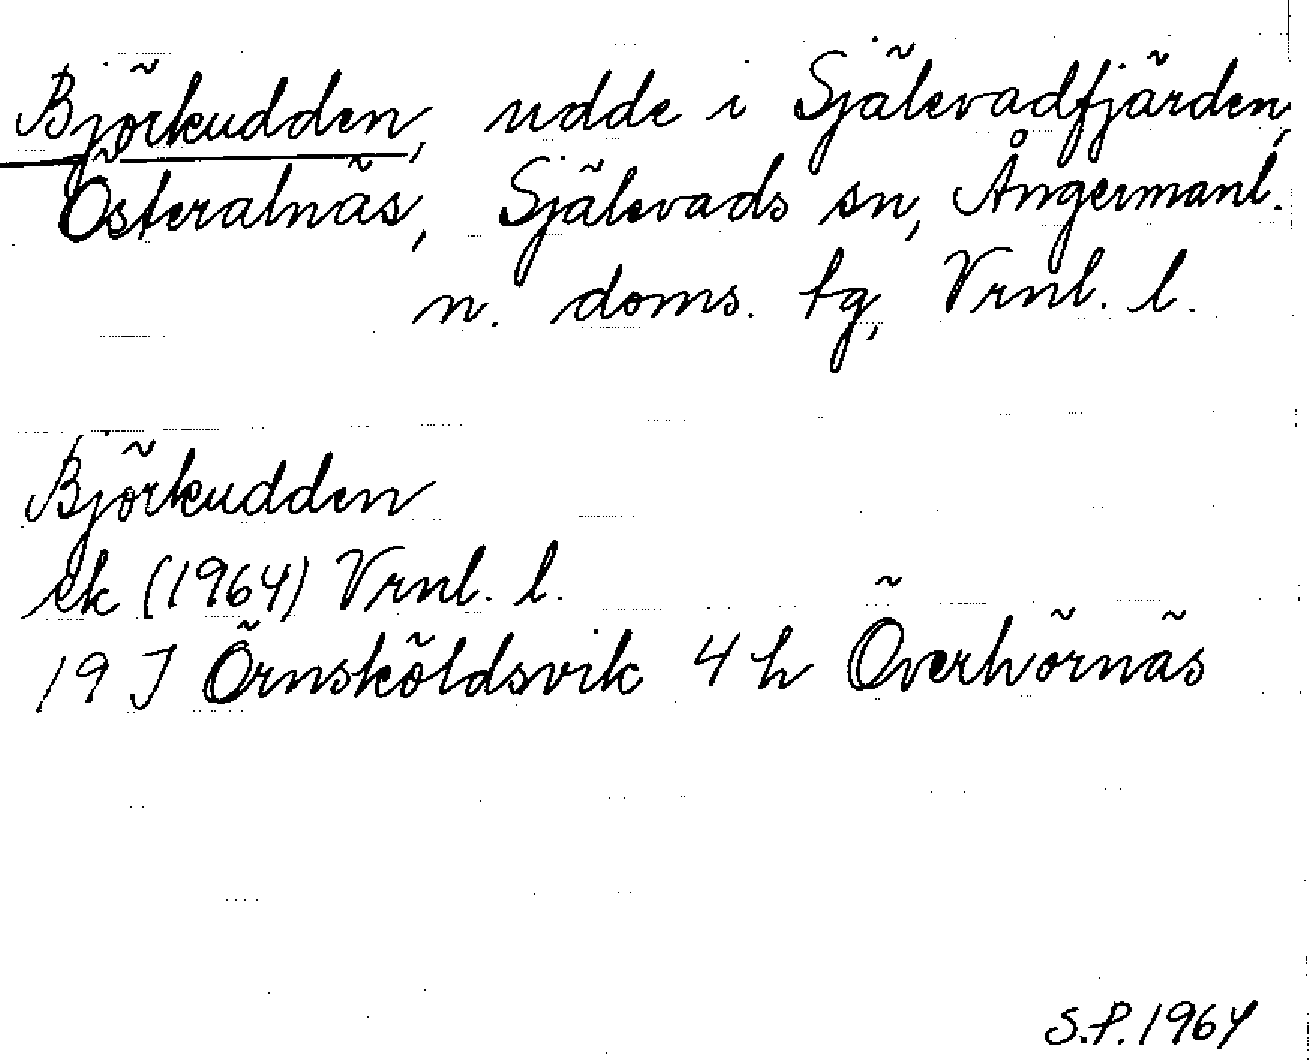 Björkudden, udde i Själevadfjärden,
Österalnäs, Själevads sn, Ångermanl.
n. doms. tg, Vrnl. l.
Björkudden
ek (1964) Vrnl. l.
19 J Örnsköldsvik 4 h Överhörnäs
S.P. 1964